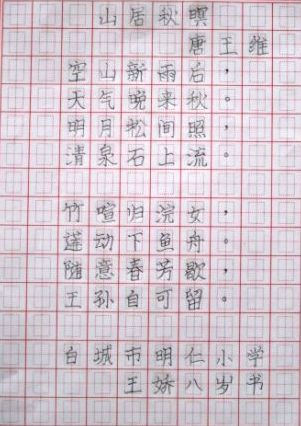 山居秋暝
唐王维
空山新雨后，
天气晚来秋。
明月松间照，
清泉石上流。
竹喧归浣女，
莲动下鱼舟。
随意春芳歇，
王孙自可留。
白城市明仁小学
王娇八岁书